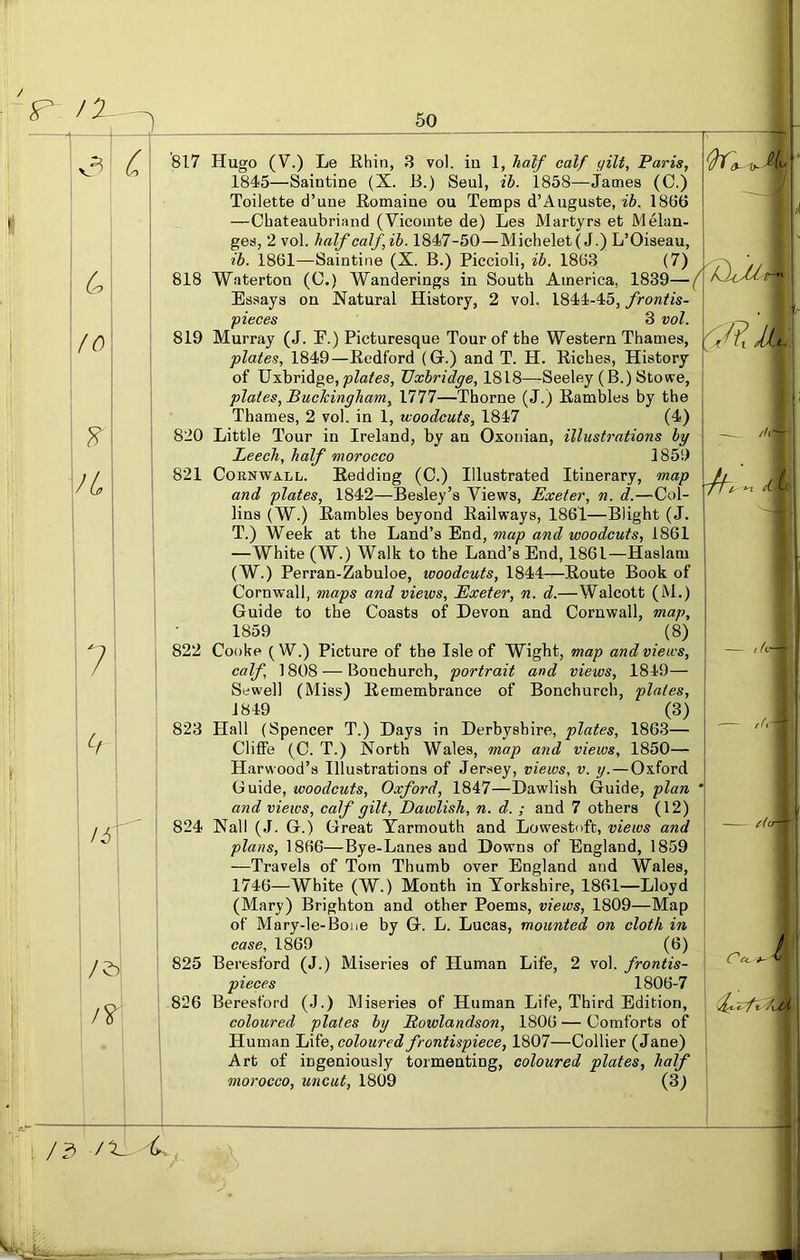 50
817 Hugo (V.) Le Rhin, 3 vol. in 1, half calf gilt, Paris,
1845—Saintine (X. B.) Seul, ib. 1858—James (C.)
Toilette d’une Romaine ou Temps d’Auguste, ib. 1866
—Chateaubriand (Vicomte de) Les Martyrs et Mélan-
ges, 2 vol. half calf, ib. 1847-50—Michelet (J.) L’Oiseau,
ib. 1861—Saintine (X. B.) Piccioli, ib. 1863 (7)
818 Waterton (C.) Wanderings in South America, 1839—
Essays on Natural History, 2 vol. 1844-45, frontis-
pieces 3 vol.
819 Murray (J. F.) Picturesque Tour of the Western Thames,
plates, 1849—Redford (G.) and T. H. Riches, History
of Uxbridge, plates, Uxbridge, 1818—Seeley (B.) Stowe,
plates, Buckingham, 1777—Thorne (J.) Rambles by the
Thames, 2 vol. in 1, woodcuts, 1847 (4)
820 Little Tour in Ireland, by an Oxonian, illustrations by
Leech, half morocco 1859
821 Cornwall. Redding (C.) Illustrated Itinerary, map
and plates, 1842—Besley’s Views, Exeter, n. d.—Col-
lins (W.) Rambles beyond Railways, 1861—Blight (J.
T.) Week at the Land’s End, map and woodcuts, 1861
—White (W.) Walk to the Land’s End, 1861—Haslam
(W.) Perran-Zabuloe, woodcuts, 1844—Route Book of
Cornwall, maps and views, Exeter, n. d.—Walcott (M.)
Guide to the Coasts of Devon and Cornwall, map,
1859 (8)
822 Cooke (W.) Picture of the Isle of Wight, map and views,
calf, 1808—Bonchurch, portrait and views, 1849—
Sewell (Miss) Remembrance of Bonchurch, plates,
1849 (3)
823 Hall (Spencer T.) Days in Derbyshire, plates, 1863—
Cliffe (C. T.) North Wales, map and views, 1850—
Harwood’s Illustrations of Jersey, views, v. y.—Oxford
Guide, woodcuts, Oxford, 1847—Dawlish Guide, plan
and views, calf gilt, Dawlish, n. d. ; and 7 others (12)
824 Nall (J. G.) Great Yarmouth and Lowestoft, views and
plans, 1866—Bye-Lanes and Downs of England, 1859
—Travels of Tom Thumb over England and Wales,
1746—White (W.) Month in Yorkshire, 1861—Lloyd
(Mary) Brighton and other Poems, views, 1809—Map
of Mary-le-Bone by G. L. Lucas, mounted on cloth in
case, 1869 (6)
825 Beresford (J.) Miseries of Human Life, 2 vol. frontis-
pieces 1806-7
826 Beresford (J.) Miseries of Human Life, Third Edition,
coloured plates by Rowlandson, 1806—Comforts of
Human Life, coloured frontispiece, 1807—Collier (Jane)
Art of ingeniously tormenting, coloured plates, half
morocco, uncut, 1809 (3)